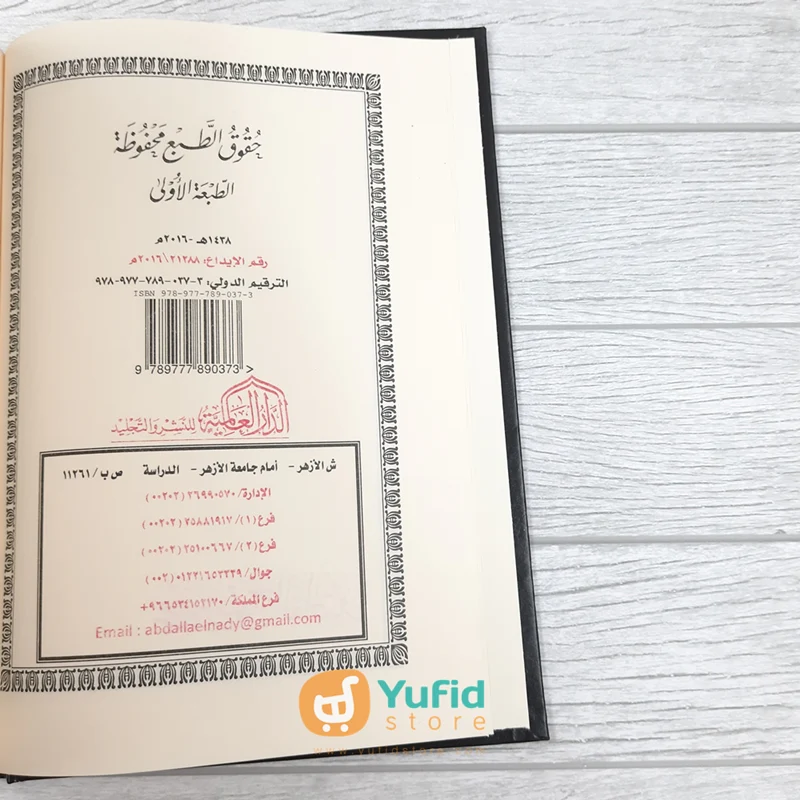 حُقُوقُ الطَّبْعِ مَحْفُوظَةٌ
الطَّبْعَةُ الأُوْلَىٰ
١٤٣٨هـ -٢٠١٦م
رقم الإيداع: ٢٠١٦/٢١٢٨٨م
الترقيم الدولي: ٣-٠٣٧-٧٨٩-٩٧٧-٩٧٨
ISBN 978-977-789-037-3
9 789777 890373 >
الدار العالمية للنشر والتجليد
ش الأزهر - أمام جامعة الأزهر - الدراسة ص ب/ ١١٢٦١
الإدارة/ ٢٦٩٩٠٥٧٠ (٠٠٢٠٢)
فرع (١)/ ٧٥٨٨١٩١٧ (٠٠٢٠٢)
فرع (٢)/ ٢٥١٠٠٦٦٧ (٠٠٢٠٢)
جوال/ ٠١٢٢١٦٥٣٣٣٩ (٠٠٢)
فرع المملكة/ ٩٦٦٥٣٤١٥٢١٧٠+
Email : abdallaelnady@gmail.com
Yufid
store